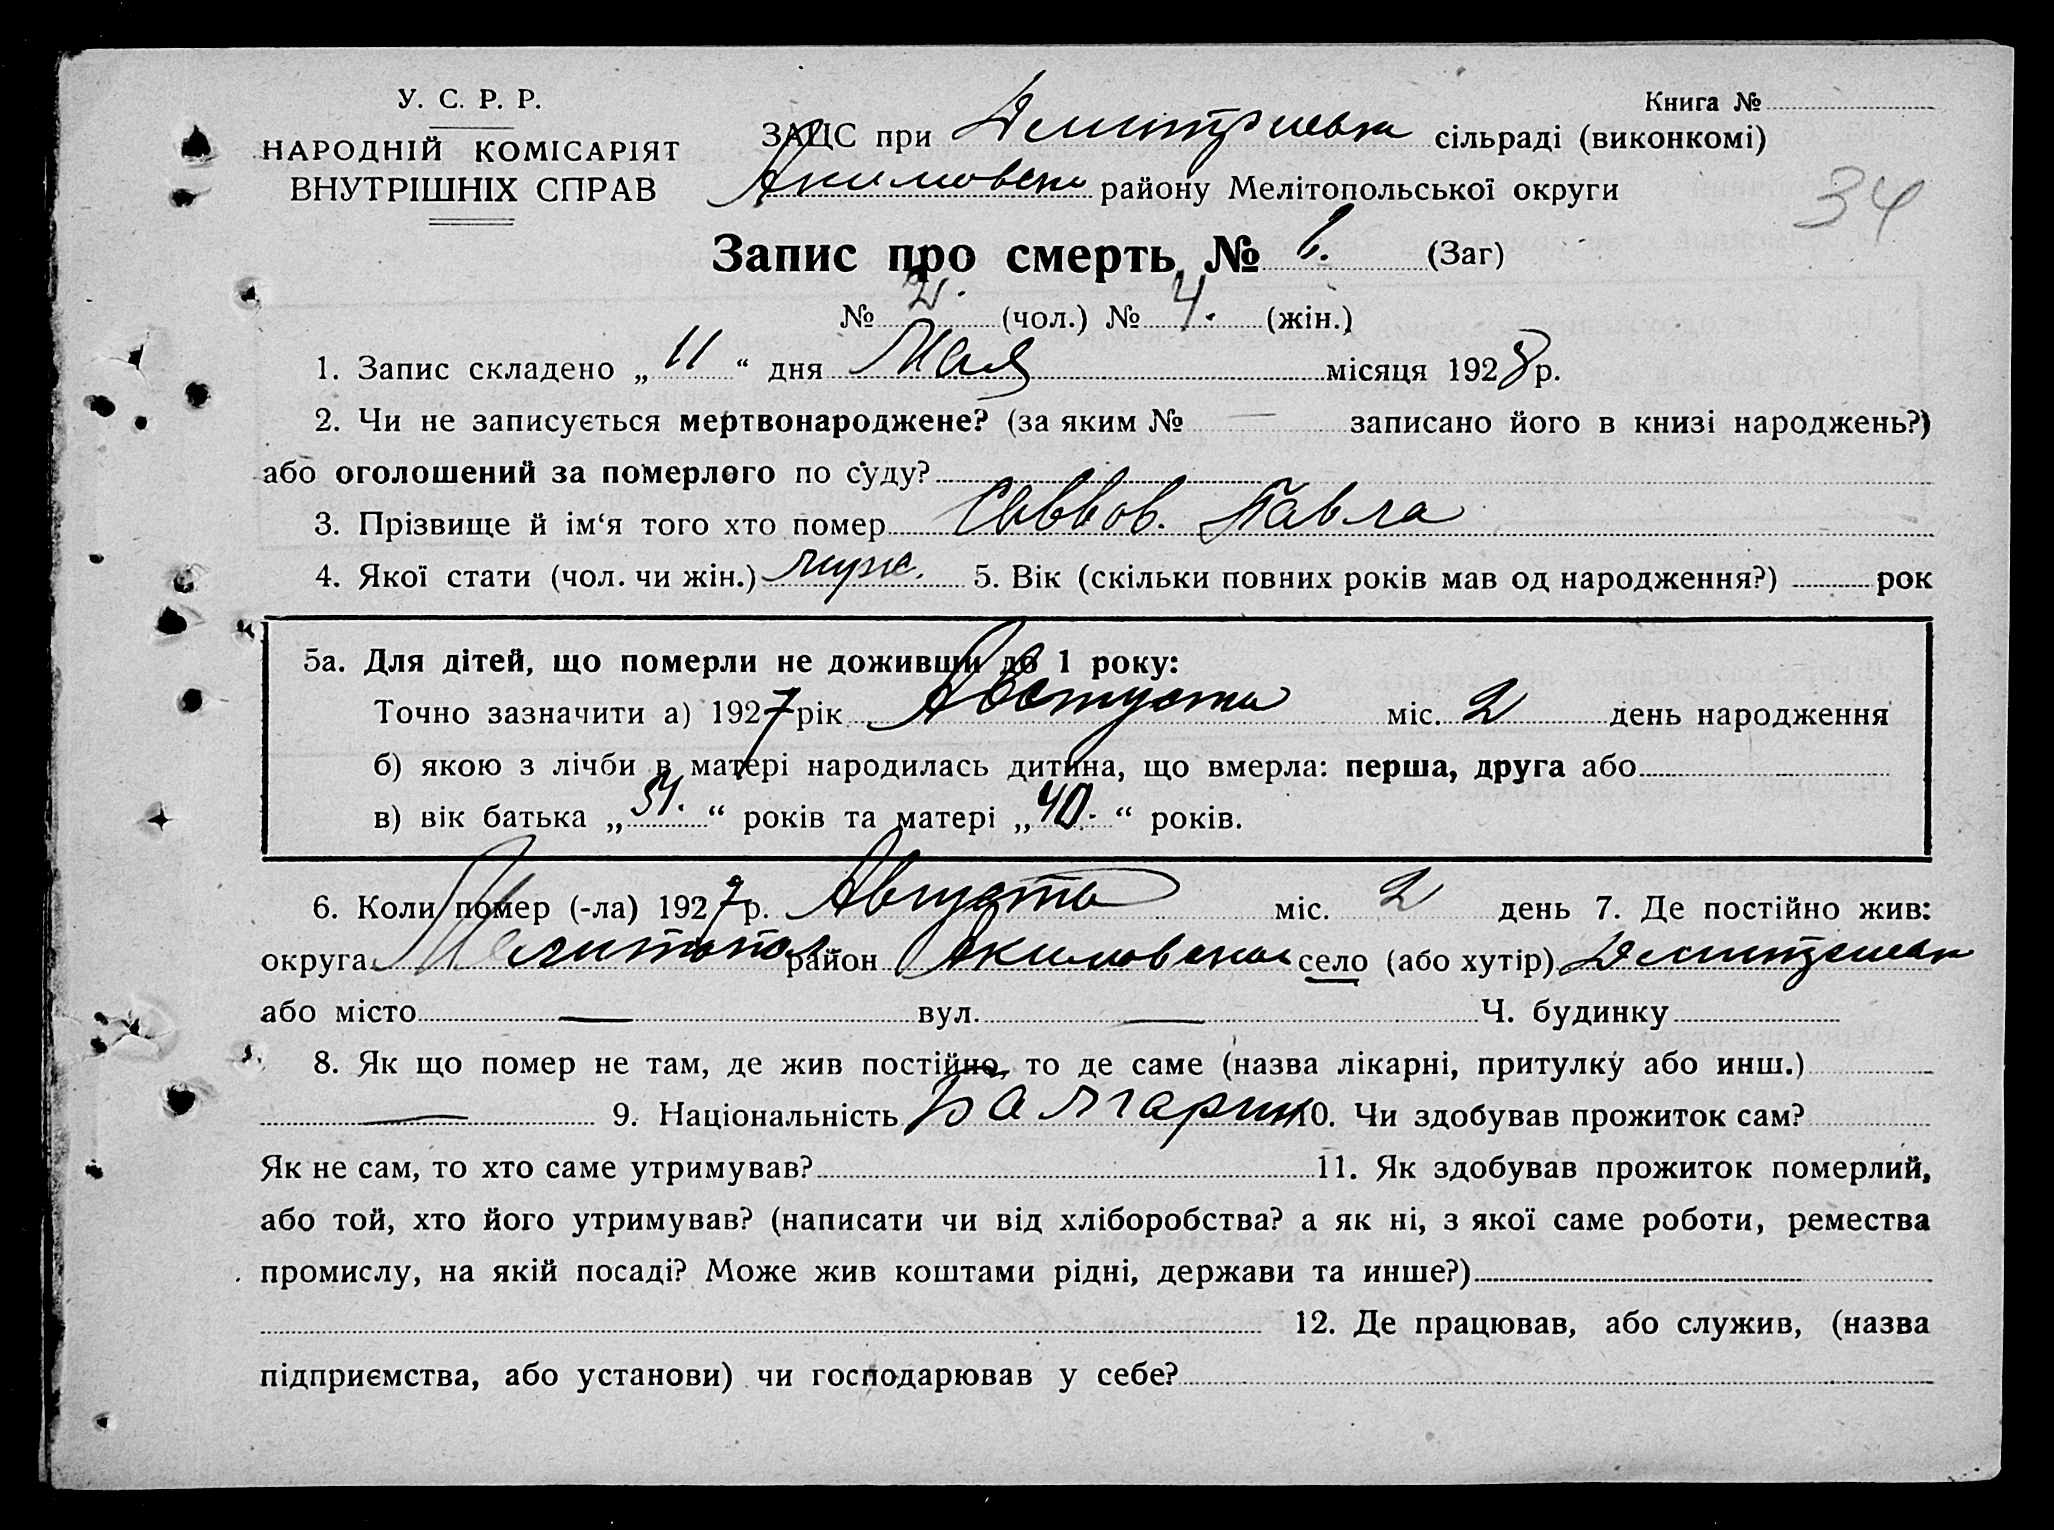 У. С. Р. Р.
НАРОДНІЙ КОМІСАРІЯТ
ВНУТРІШНІХ СПРАВ
Книга №
ЗАЦС при Дмитриевка сільраді (виконкомі)
Акимовськ району Мелітопольської округи
34
Запис про смерть № 6. (Заг)
№ 2. (чол.) № 4. (жін.)
1. Запис складено „ 11 “ дня Мая місяця 1928 р.
2. Чи не записується мертвонароджене? (за яким № — записано його в книзі народжень?)
або оголошений за померлого по суду?
3. Прізвище й ім‘я того хто помер Саввов. Павла
4. Якої стати (чол. чи жін.) муж. 5. Вік (скільки повних років мав од народження?) рок
5а. Для дітей, що померли не доживши до 1 року:
Точно зазначити а) 1927 рік Августа міс. 2 день народження
б) якою з лічби в матері народилась дитина, що вмерла: перша, друга або
в) вік батька „ 51. “ років та матері „ 40. “ років.
6. Коли помер (-ла) 1927 р. Августа міс. 2 день 7. Де постійно жив:
округа Мелитопол район Акимовский село (або хутір) Дмитриевк
або місто — вул. — Ч. будинку
8. Як що помер не там, де жив постійно, то де саме (назва лікарні, притулку або инш.)
— 9. Національність Балгарин 10. Чи здобував прожиток сам?
Як не сам, то хто саме утримував? 11. Як здобував прожиток померлий,
або той, хто його утримував? (написати чи від хліборобства? а як ні, з якої саме роботи, ремества
промислу, на якій посаді? Може жив коштами рідні, держави та инше?)
12. Де працював, або служив, (назва
підприємства, або установи) чи господарював у себе?